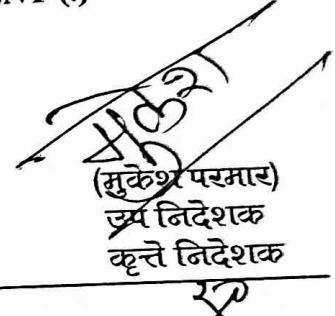 मुकेश
(मुकेश परमार)
उप निदेशक
कृत्ते निदेशक